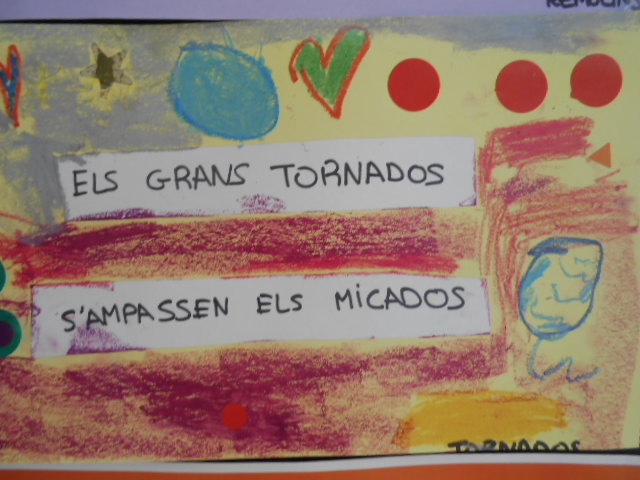 REMOLINS
ELS GRANS TORNADOS
S'AMPASSEN ELS MICADOS
TORNADOS